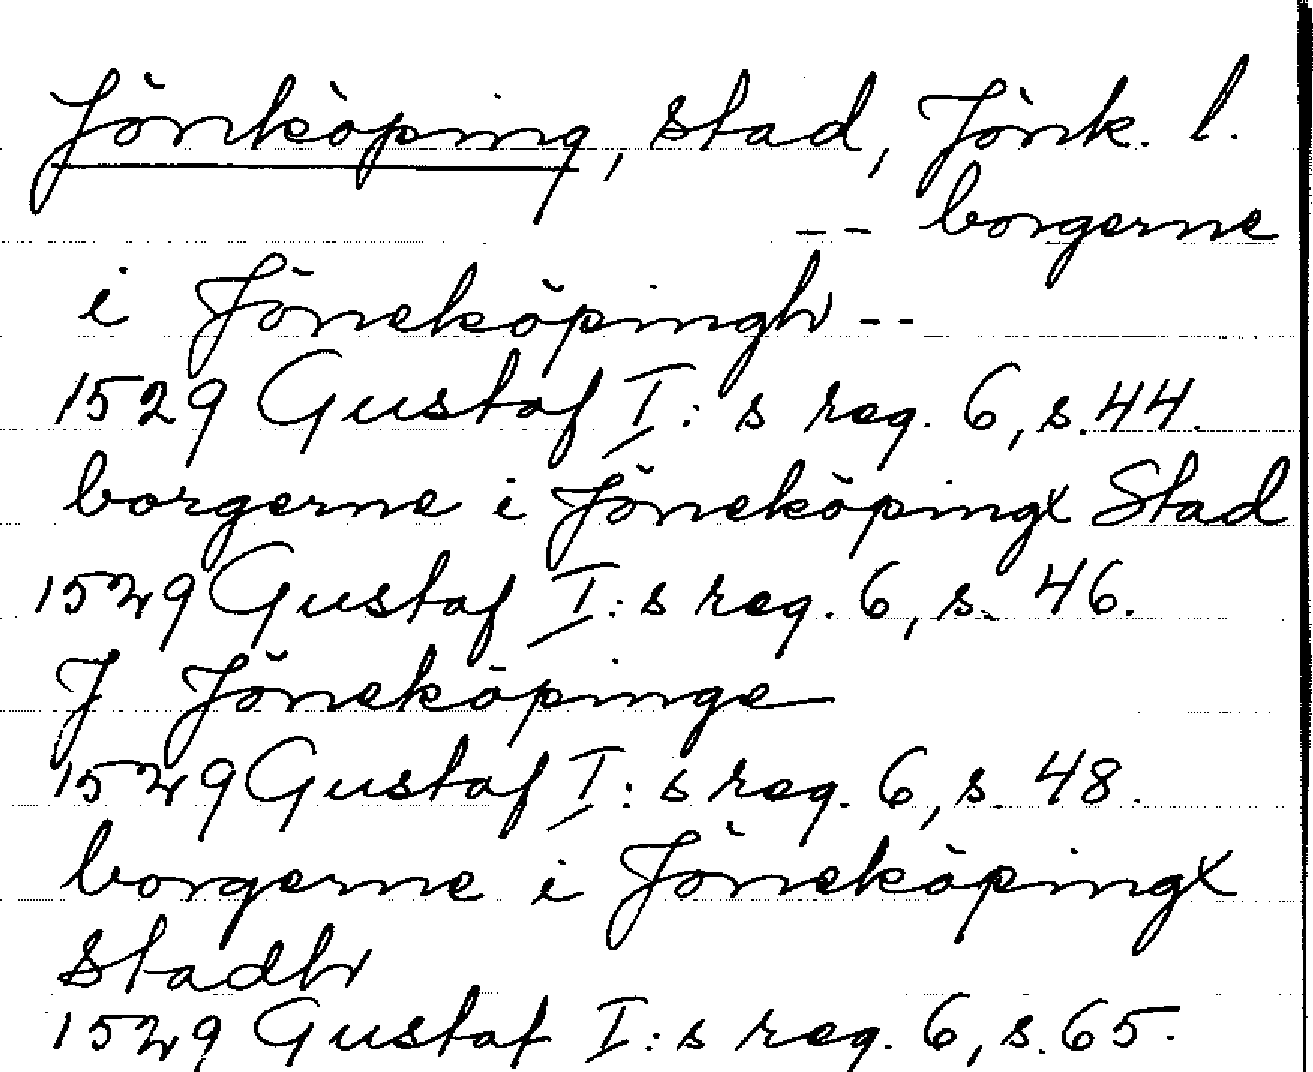 Jönköping, stad, Jönk. l.
-- borgerne
i Jöneköpingh --
1529 Gustaf I:s reg. 6, s. 44.
borgerne i Jöneköpingx Stad
1529 Gustaf I:s reg. 6, s. 46.
J Jöneköpinge
1529 Gustaf I:s reg. 6, s. 48.
borgerne i Jöneköpingx
stadh
1529 Gustaf I:s reg. 6, s. 65.